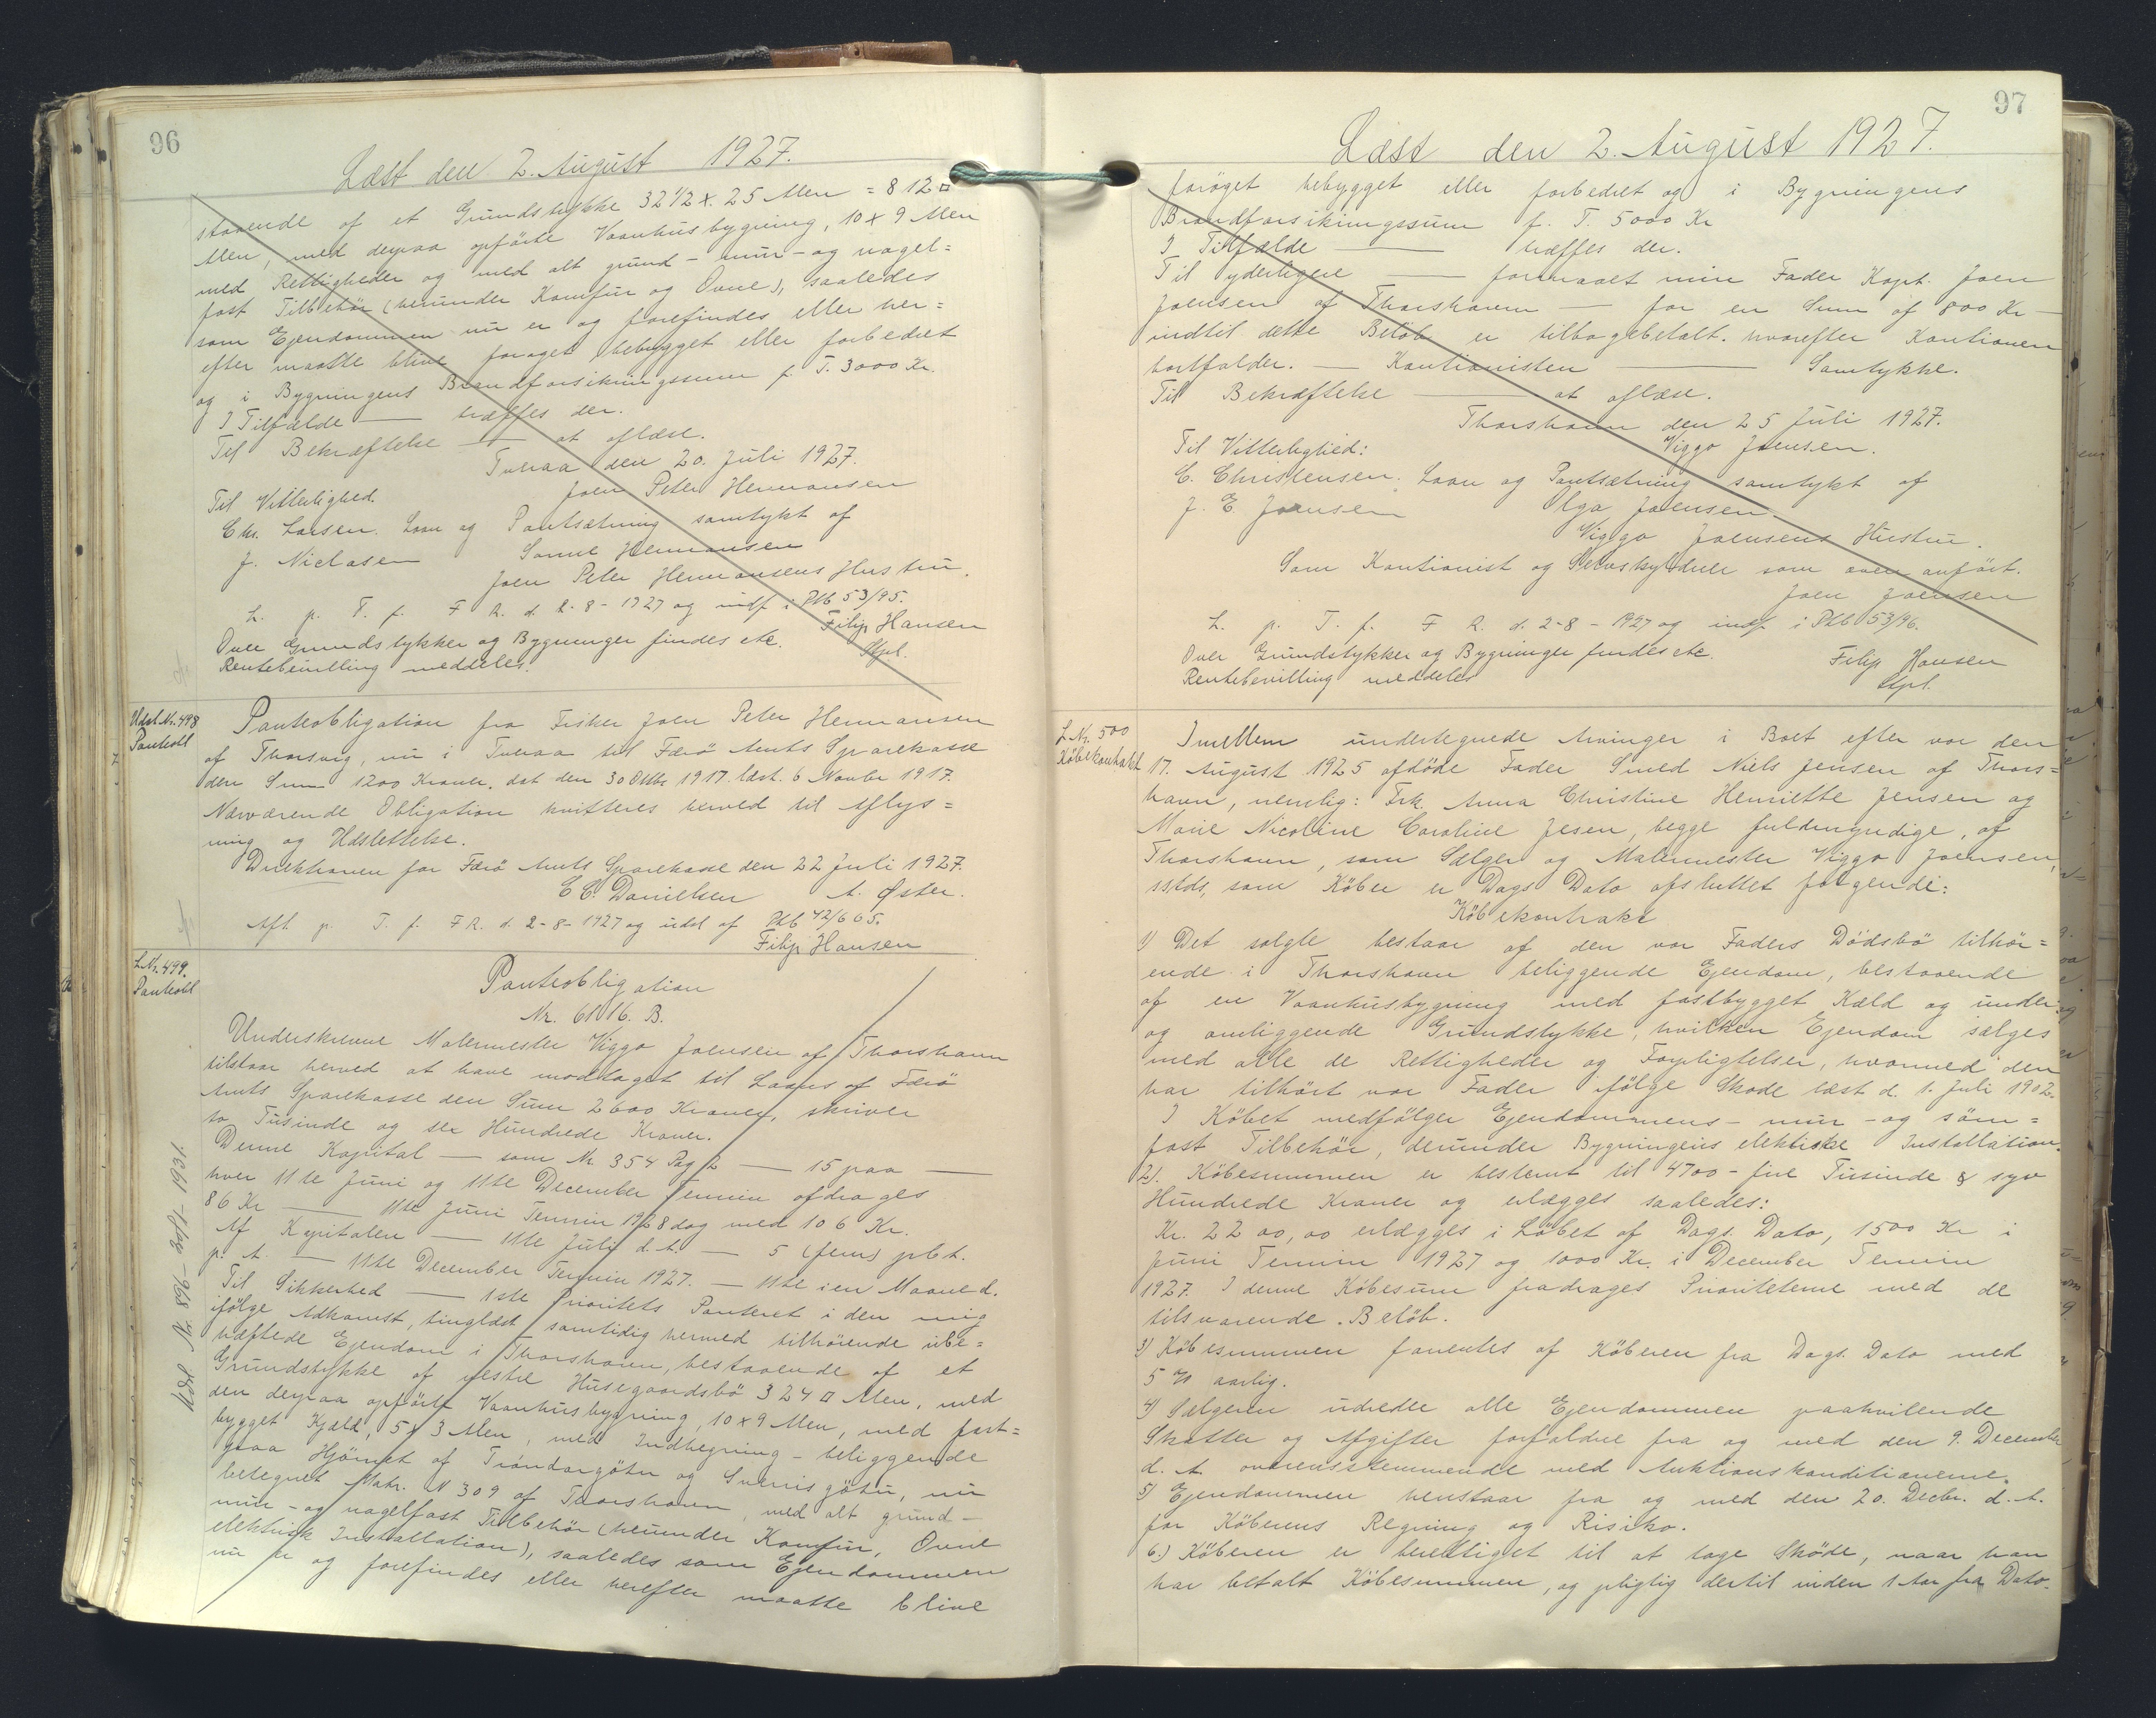 96
Læst den 2. August 1927.
staaende af et Grundstykke 32 1/2 x 25 Alen = 812 □
Alen, med derpaa opførte Vaanhusbygning, 10 x 9 Alen
med Rettigheder og med alt grund- mur- og nagel=
fast Tilbehør (herunder Komfur og Ovne), saaledes
som Ejendommen nu er og forefindes eller her=
efter maatte blive forøget bebygget eller forbedret
og i Bygningens Brandforsikringssum p. T. 3000 Kr.
I Tilfælde — træffes der.
Til Bekræftelse — at aflæse.
Tveraa den 20. Juli 1927.
Til Vitterlighed. Joen Peter Hermansen
Chr. Larsen. Laan og Pantsætning samtykt af
J. Niclasen Sanne Hermansen
Joen Peter Hermansens Hustru.
L. p. T. f. F R. d. 2-8-1927 og indf. i Ptb 53/95.
Over Grundstykker og Bygninger findes etc. Filip Hansen
Rentebevilling meddeles. Stpl.
Udsl. Nr. 498
Panteobl
Panteobligation fra Fisker Joen Peter Hermansen
af Thorsvig, nu i Tveraa til Færø Amts Sparekasse
den Sum 1200 Kroner. dat den 30 Oktbr 1917. læst. 6 Novbr 1917.
Nærværende Obligation kvitteres herved til Aflys=
ning og Udslettelse.
Direktionen for Færø Amts Sparekasse den 22 Juli 1927.
C C. Danielsen A. Øster.
Afl p. T. f. F R. d. 2-8-1927 og udsl af Ptb 42/665.
Filip Hansen
L.Nr. 499.
Panteobl
Panteobligation
Nr. 61016. B.
Underskrevne Malermester Viggo Joensen af Thorshavn
tilstaar herved at have modtaget til Laans af Færø
Amts Sparekasse den Sum 2600 Kroner, skriver
to Tusinde og sex Hundrede Kroner.
Denne Kapital — som Nr. 354 Pag 2 — 15 paa —
hver 11te Juni og 11te December Termin afdrages
86 Kr — 11te Juni Termin 1928 dog med 106 Kr.
Af Kapitalen — 11te Juli d. A. — 5 (fem) pCt.
p. A. — 11te December Termin 1927. — 11te i en Maaned.
Til Sikkerhed — 1ste Prioritets Panteret i den mig
ifølge Adkomst, tinglæst samtidig hermed tilhørende ube=
hæftede Ejendom i Thorshavn, bestaaende af et
Grundstykke af ydestre Husegaardsbø 324 □ Alen, med
den derpaa opførte Vaanhusbygning, 10 x 9 Alen, med fast=
bygget Kjæld, 5 x 3 Alen, med Indhegning - beliggende
paa Hjørnet af Tróndargøtu og Sverrisgøtu, nu
betegnet Matr. N 309 af Thorshavn, med alt grund-
mur- og nagelfast Tilbehør (herunder Komfur, Ovne
elektrisk Installation), saaledes som Ejendommen
nu er og forefindes eller herefter maatte blive
Udsl. N. 896- 20/1-1931.
97
Læst den 2. August 1927.
forøget bebygget eller forbedret og i Bygningens
Brandforsikringssum p. T. 5000 Kr
I Tilfælde — træffes der.
Til yderligere — formaaet min Fader Kapt. Joen
Joensen af Thorshavn — for en Sum af 800 Kr —
indtil dette Beløb er tilbagebetalt. hvorefter Kautionen
bortfalder. — Kautionisten — Samtykke.
Til Bekræftelse — at aflæse.
Thorshavn den 25 Juli 1927.
Til Vitterlighed: Viggo Joensen.
C. Christensen. Laan og Pantsætning samtykt af
J. E. Joensen Olga Joensen
Viggo Joensens Hustru.
Som Kautionist og Selvskyldner som oven anført.
Joen Joensen
L. p. T. f. F R. d. 2-8-1927 og indf. i Ptb 53/96.
Over Grundstykker og Bygninger findes etc. Filip Hansen
Rentebevilling meddeles Stpl.
L.Nr. 500
Købekontrakt
Imellem undertegnede Arvinger i Boet efter vor den
17. August 1925 afdøde Fader Smed Niels Jensen af Thors=
havn, nemlig: Frk. Anna Christine Henriette Jensen og
Marie Nicoline Caroline Jesen, begge fuldmyndige, af
Thorshavn, som Sælger og Malermester Viggo Joensen,
sstds, som Køber er Dags Dato afsluttet følgende:
Købekontrakt
1) Det solgte bestaar af den vor Faders Dødsbo tilhør=
ende i Thorshavn beliggende Ejendom, bestaaende
af en Vaanhusbygning med fastbygget Kæld og under
og omliggende Grundstykke, hvilken Ejendom sælges
med alle de Rettigheder og Forpligtelser, hvormed den
har tilhørt vor Fader ifølge Skøde læst d. 1. Juli 1902.
I Købet medfølger Ejendommens - mur - og søm=
fast Tilbehør, derunder Bygningens elektriske Installation.
2). Købesummen er bestemt til 4700 - fire Tusinde & syv
Hundrede Kroner og erlægges saaledes:
Kr. 2200,00 erlægges i Løbet af Dags Dato, 1500 Kr i
Juni Termin 1927 og 1000 Kr. i December Termin
1927. I denne Købesum fradrages Prioriteterne med de
tilsvarende Beløb.
3) Købesummen forrentes af Køberen fra Dags Dato med
5 % aarlig.
4) Sælgeren udreder alle Ejendommen paahvilende
Skatter og Afgifter forfaldne fra og med den 9. December
d. A. overensstemmende med Auktionskonditionerne.
5) Ejendommen henstaar fra og med den 20. Decbr. d. A.
for Køberens Regning og Risiko.
6.) Køberen er berettiget til at tage Skøde, naar han
har betalt Købesummen, og pligtig dertil inden 1 Aar fra Dato.